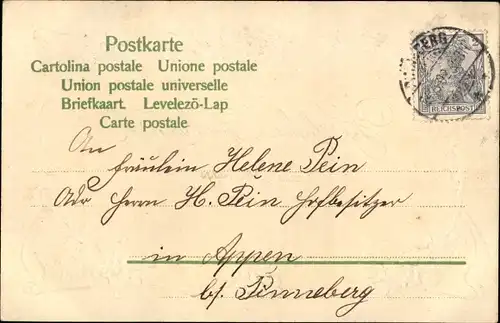 Postkarte
Cartolina postale Unione postale
Union postale universelle
Briefkaart. Levelező-Lap
Carte postale
An
Fräulein Helene Pein
Adr Herrn H. Pein Hofbesitzer
in Appen
b/. Pinneberg
BERG
REICHSPOST